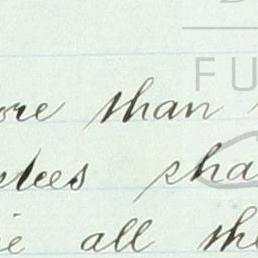 FU
ore than
stees sha
ie all the